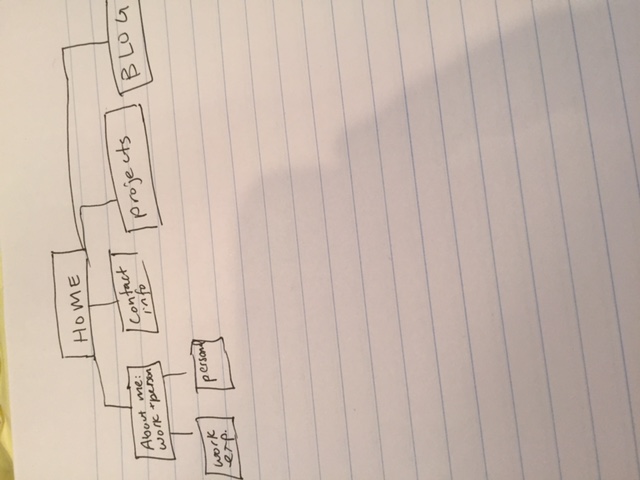 HOME
About me:
work + person
contact
info
projects
BLOG
work
exp.
personal